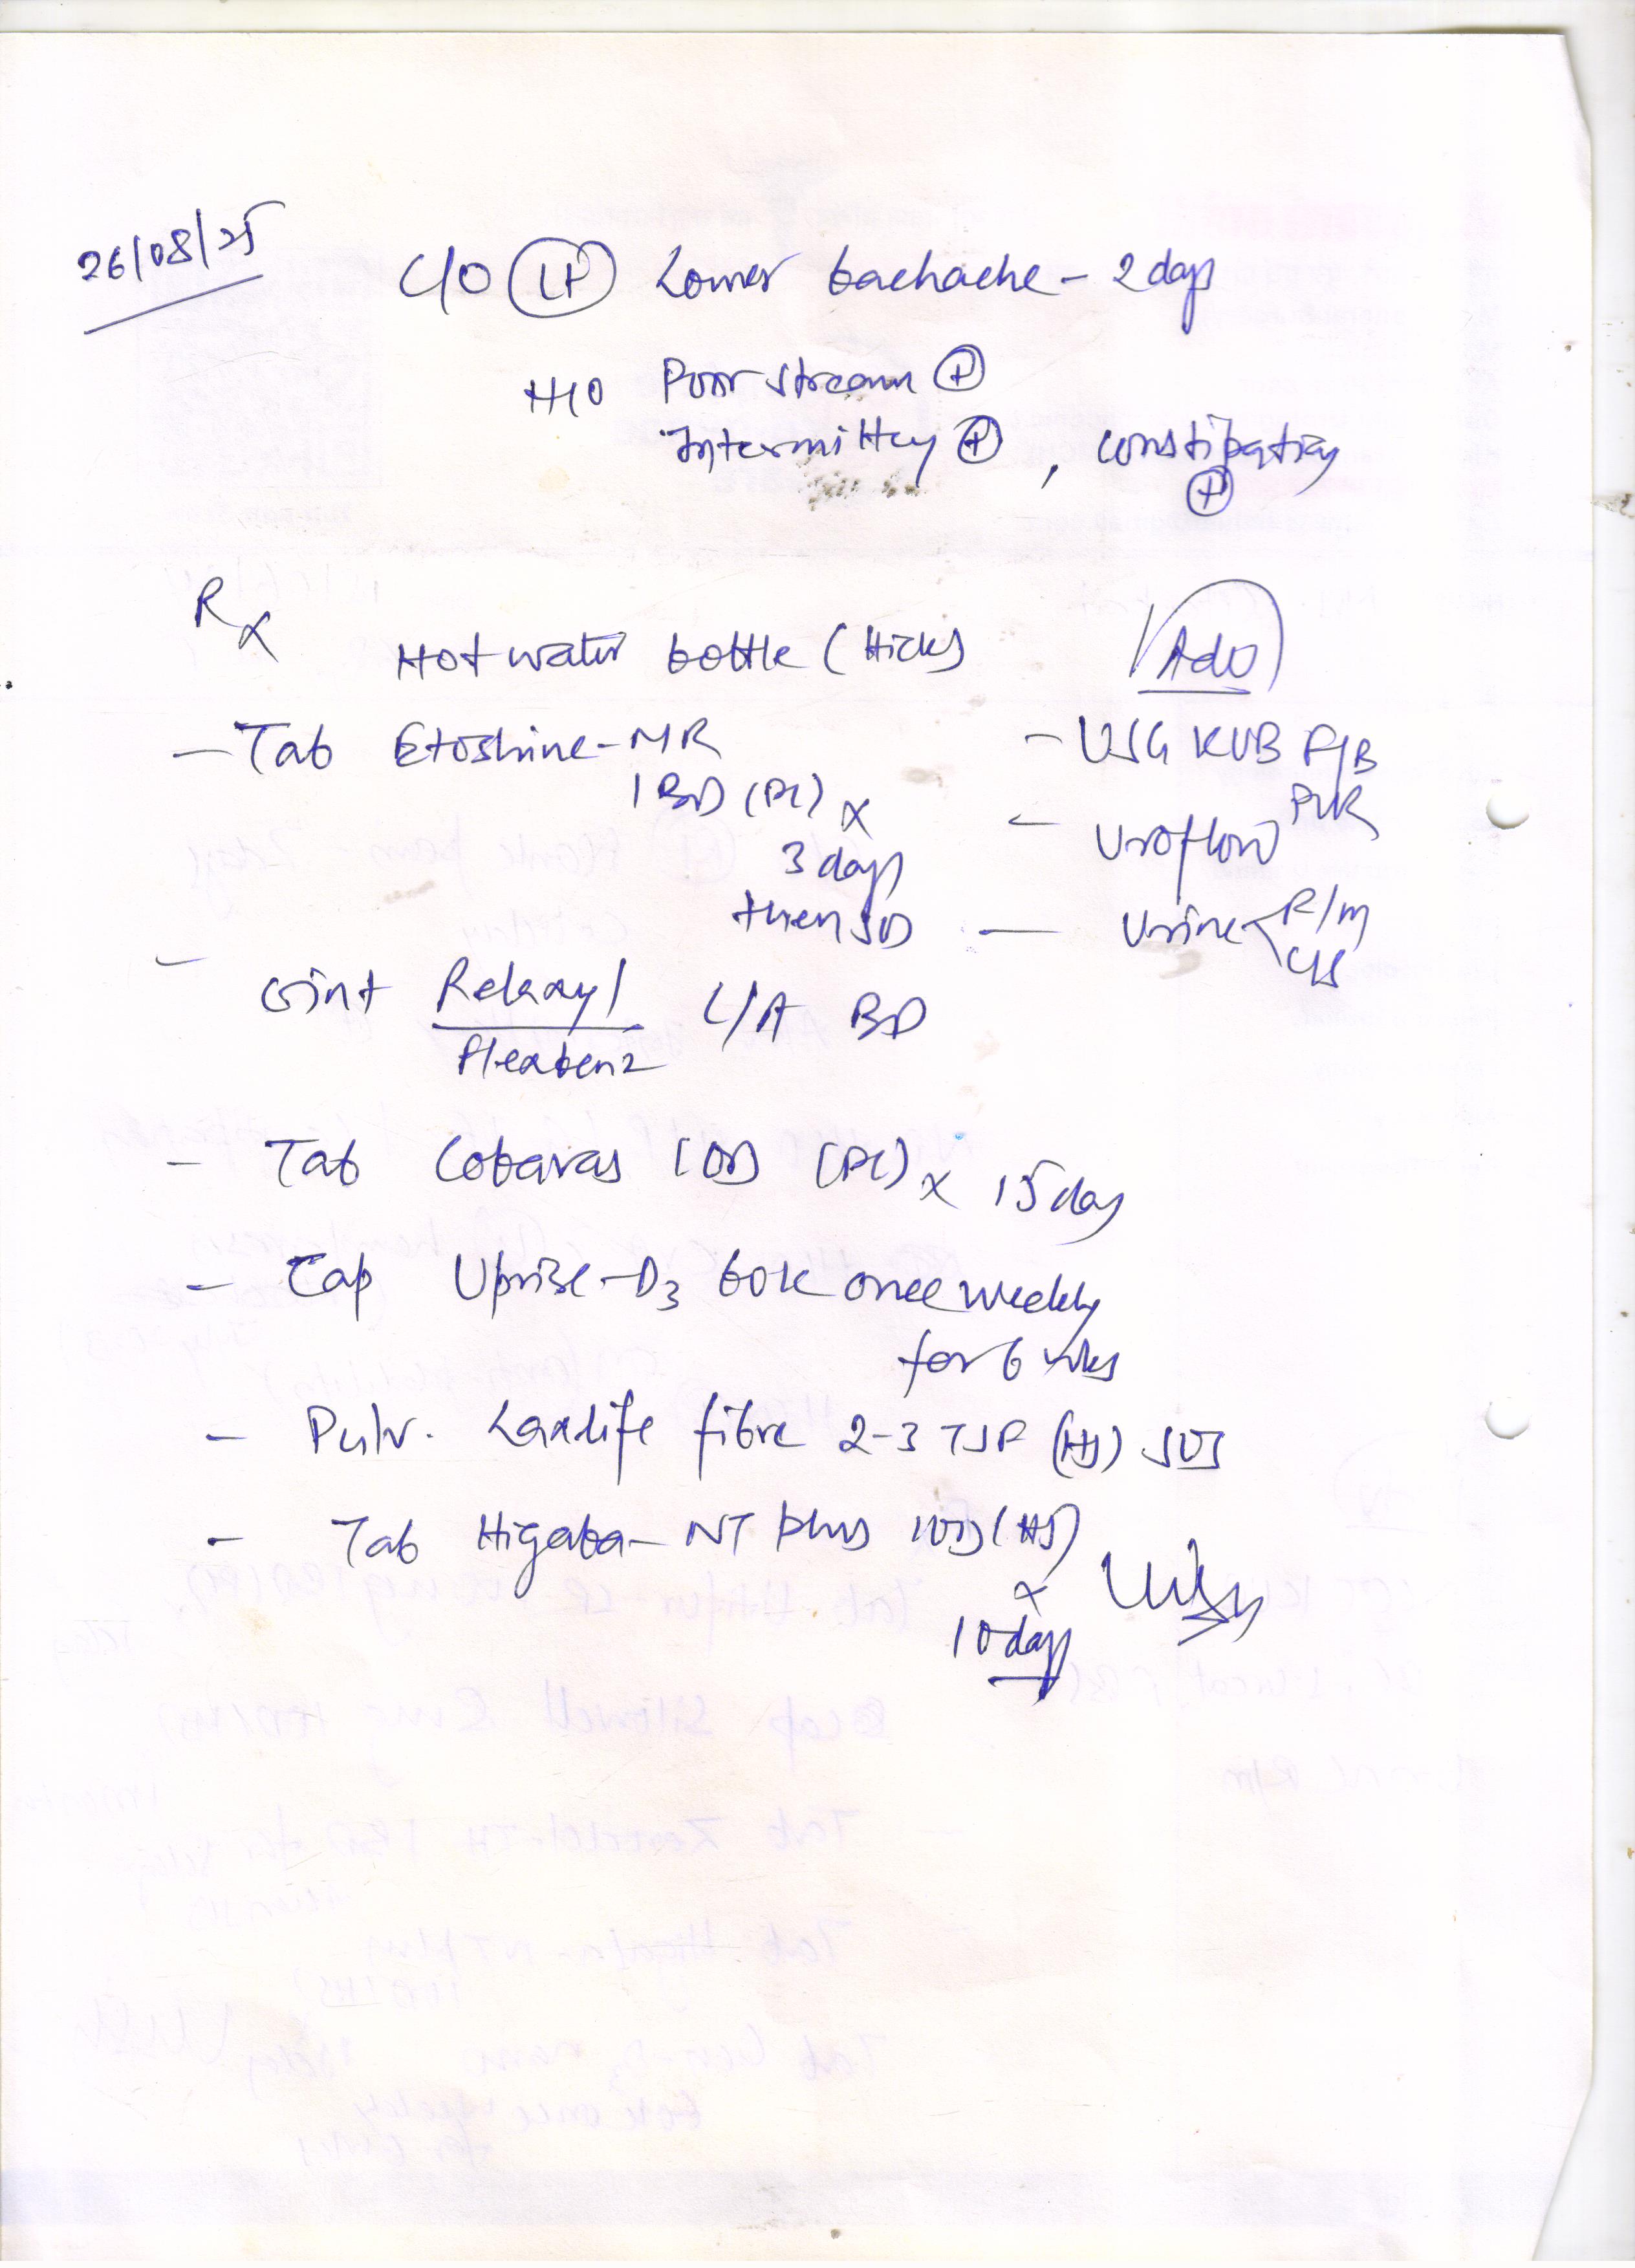 26/08/25
C/O (Lt) Lower backache - 2 days
H/O Poor stream (+)
Intermittency (+), constipation (+)
Rx
Hot water bottle (Hicks)
- Tab Etoshine-MR
1 BD (PC) x
3 days
then SOS
- Oint Relaxyl / Flexabenz L/A BD
- Tab Cobavas 1 OD (PC) x 15 day
- Cap Uprise-D3 60K once weekly
for 6 wks
- Pulv. Laxlife fibre 2-3 TSP (HS) SOS
- Tab Higaba-NT plus 1 OD (HS)
x
10 days
Adv
- USG KUB F/B
PVR
- Uroflow
- Urine R/M
C/S